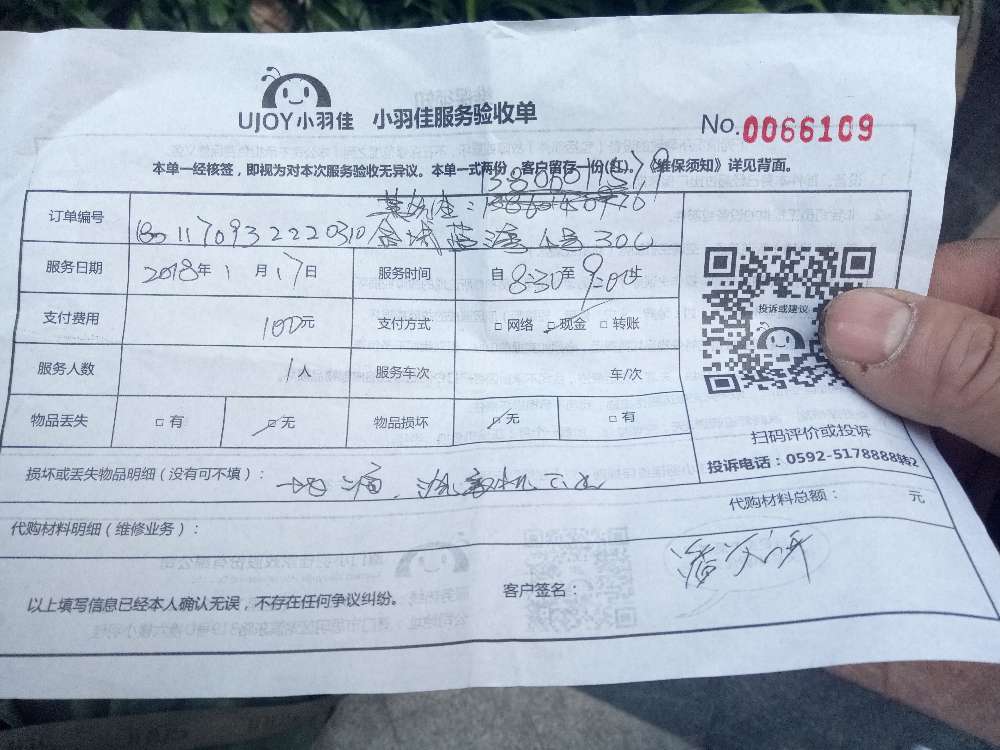 UJOY小羽佳 小羽佳服务验收单
No.0066109
本单一经核签，即视为对本次服务验收无异议。本单一式两份，客户留存一份(红)。《维保须知》详见背面。
订单编号
服务日期 2018年1月17日 服务时间 自8:30至9:00止
支付费用 100元 支付方式 □网络 □现金 □转账
服务人数 1人 服务车次 车/次
物品丢失 □有 □无 物品损坏 □无 □有
投诉或建议
扫码评价或投诉
投诉电话：0592-5178888转2
损坏或丢失物品明细（没有可不填）：
代购材料总额： 元
代购材料明细（维修业务）：
以上填写信息已经本人确认无误，不存在任何争议纠纷。 客户签名：